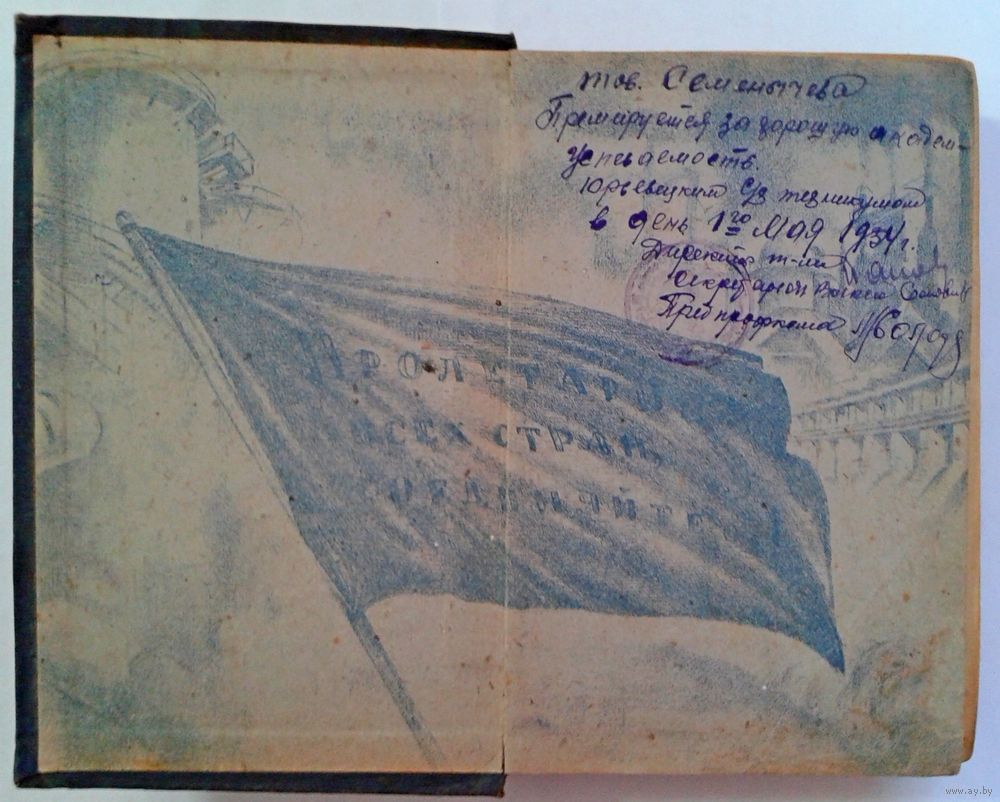 тов. Семенычева
Премируется за хорошую академ-
успеваемость.
Юрьевецким с/х техникумом
в день 1го мая 1934 г.
Директор т-ма
Секретарь
Пред профкома
Пролетарии
всех стран,
соединяйте
www.ay.by